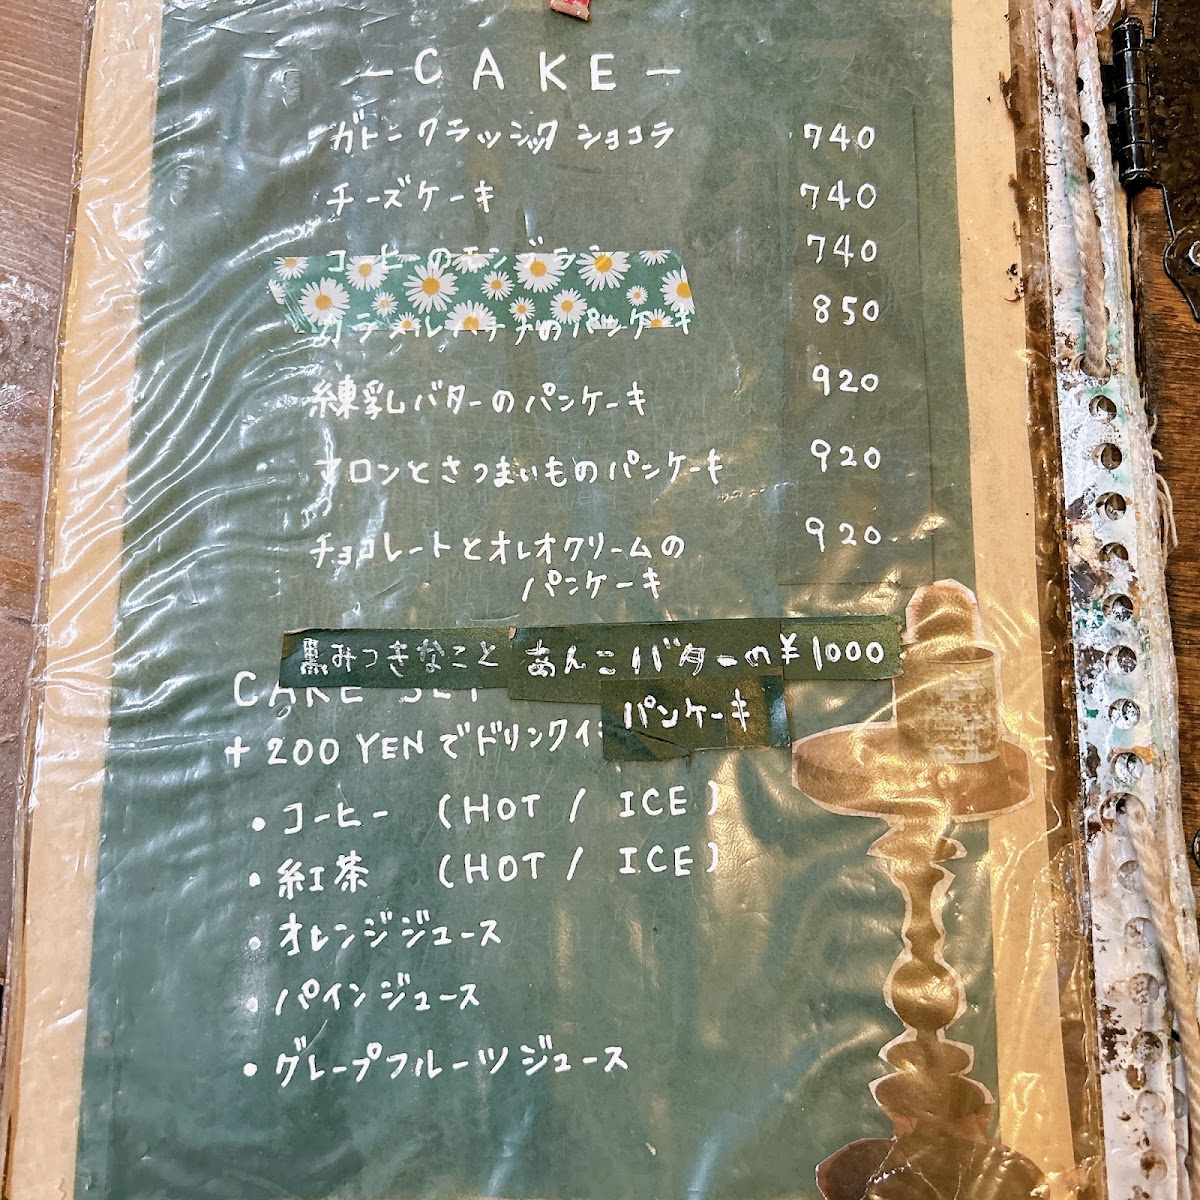 - CAKE -
ガトークラッシック ショコラ 740
チーズケーキ 740
コーヒーのモンブラン 740
カラメルバナナのパンケーキ 850
練乳バターのパンケーキ 920
マロンとさつまいものパンケーキ 920
チョコレートとオレオクリームの 920
パンケーキ
黒みつきなこと あんこバターの ¥1000
パンケーキ
CAKE SET
+200 YENでドリンク
・コーヒー (HOT / ICE)
・紅茶 (HOT / ICE)
・オレンジジュース
・パインジュース
・グレープフルーツジュース